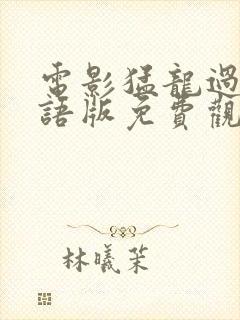 電影猛龍過
語版免費觀
林曦茉